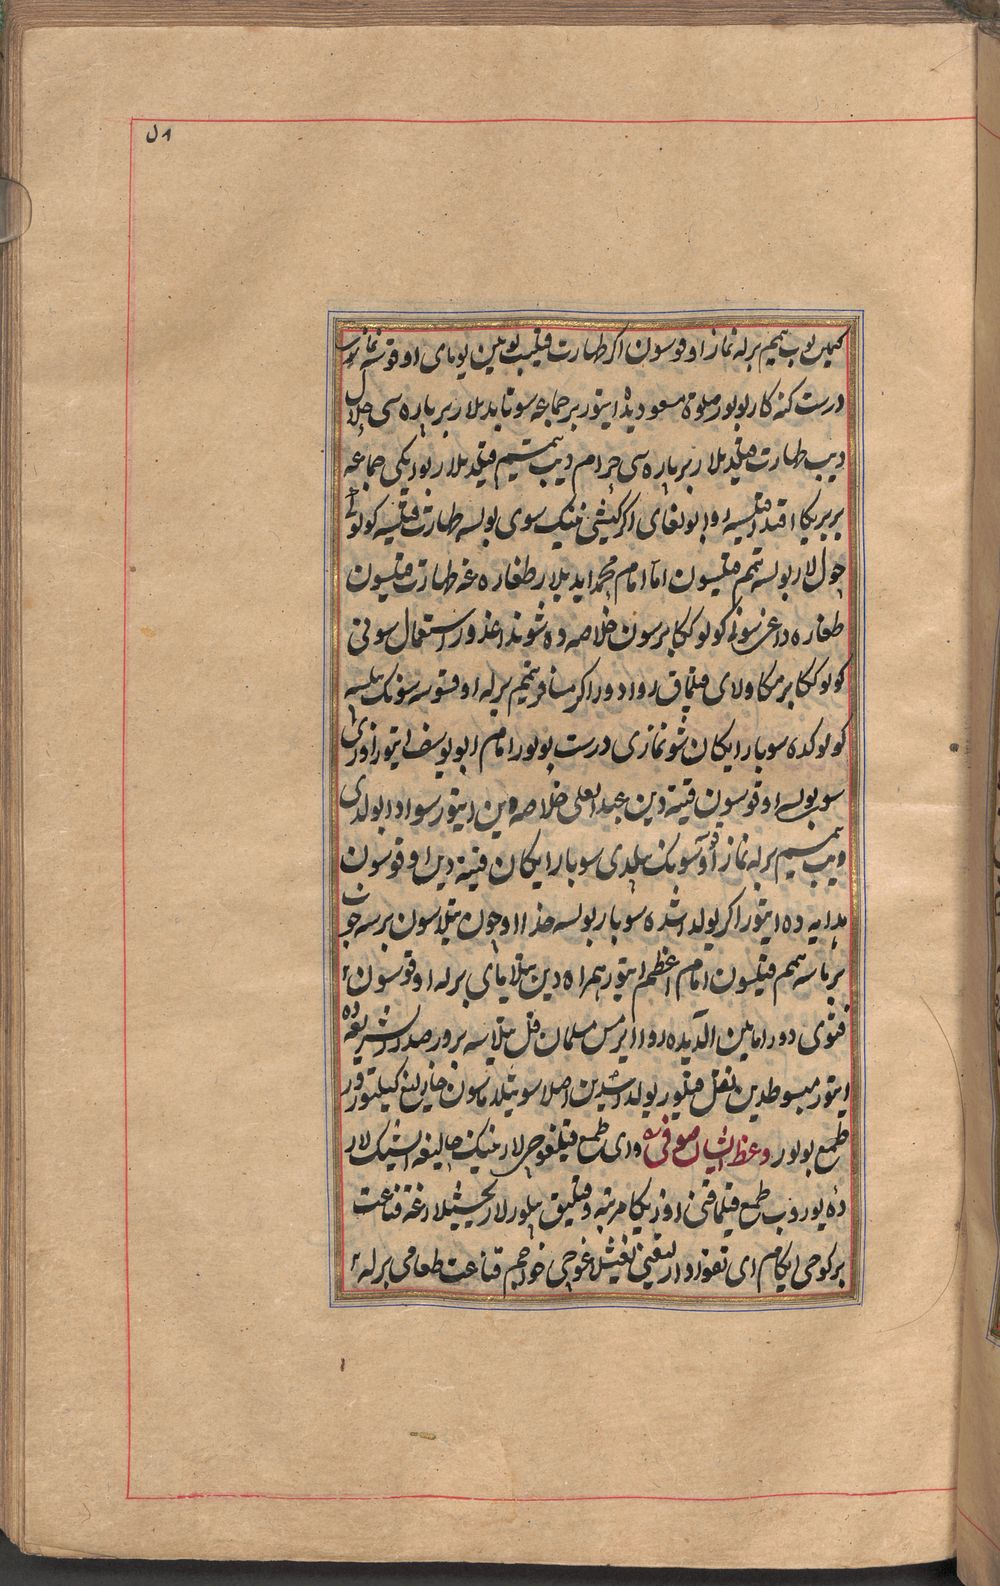 ۵۸
کیلن بوب تیمم برله نماز اوقوسون اکر طهارت قیلیب بولمین یومای اوقوسه نمازی
درست کنه کار بولور صلوة مسعودیده ایتور بر جماعه سو تابدیلار بر پاره سی حلال
دیب طهارت قیلدیلار بر پاره سی حرام دیب تیمم قیلدیلار بو ایکی جماعه
بر بریکا اقتدا قیلسه روا بولغای اکر کیشی ننیک سوی بولسه طهارت قیلسه کولوکی
چول لار بولسه تیمم قیلسون اما امام محمد ایدیلار طغاره غه طهارت قیلسون
طغاره داغی سونی کولوککا برسون خلاصه ده شونداغدور استعمال سونی
کولوککا برمکا ولای قیلماق روا دور اکر مسافر تیمم برله اوقوسه سونک بیلسه
کولوکده سو بار ایکان شو نمازی درست بولور امام ابو یوسف ایتور اوزی
سو بولسه اوقوسون قیته دین عبد العلی خلاصه دین ایتور سو ادا بولدی
دیب تیمم برله نماز اوقوسه سونک بیلدی سو بار ایکان قیته دین اوقوسون
هدایه ده ایتور اکر یولداشده سو بار بولسه خدا اوچون تیلاسون برسه خوب
برماسه تیمم قیلسون امام اعظم ایتور همراه دین تیلامای برله اوقوسون
فتوی دور امابین الدیده روا ایرمس مسلمان قل تیلاسه برور صدر شریعه ده
ایتور مبسوطدین نقل قیلور یولداشیدین اصلا سو تیلاماسون خارلیغ کیلتورور
طمع بولور وعظ ایشان صوفی ای طمع قیلغوچی لار نینک حالیغه ایشیک لار
ده یوروب طمع قیلماقنی اوزیکا مرتبه و قلیق بیلور لار یخشیلارغه قناعت
بر کوچی ایکام ای تقوادار لیقینی تفتیشلاغوچی خواجم قناعت طعامی برله